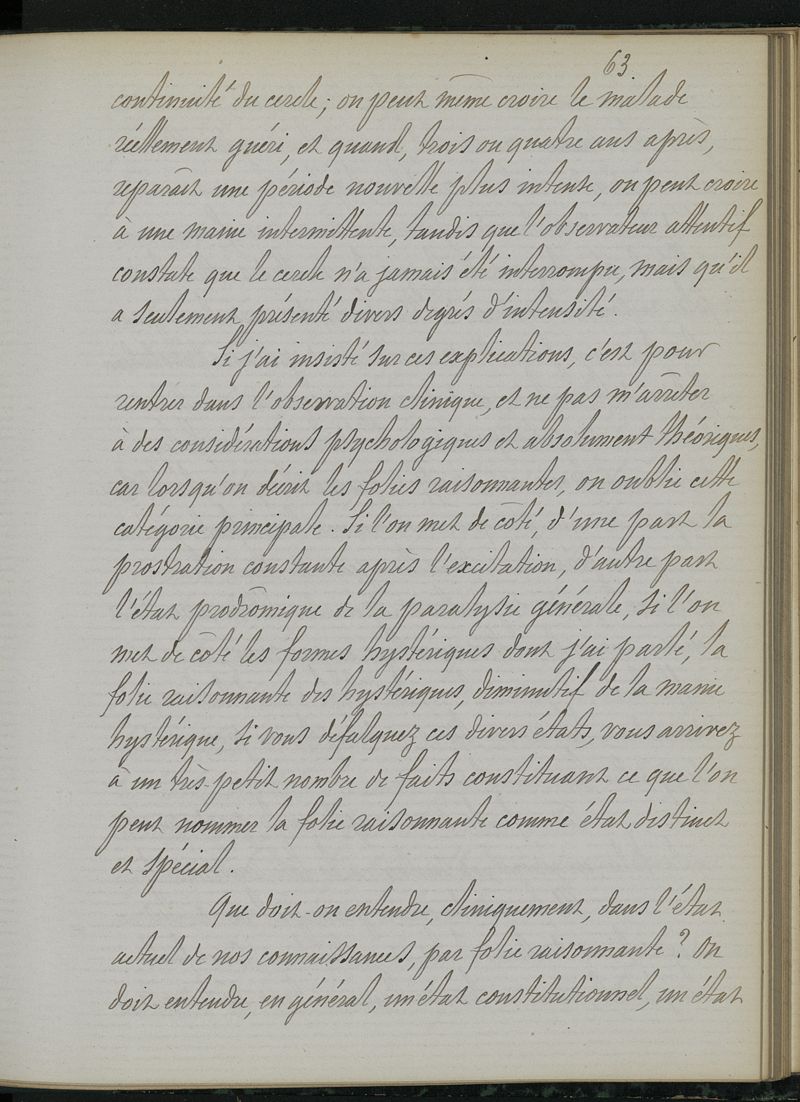 63
continuité du cercle; on peut même croire le malade
réellement guéri, et quand, trois ou quatre ans après,
reparaît une période nouvelle plus intense, on peut croire
à une manie intermittente, tandis que l'observateur attentif
constate que le cercle n'a jamais été interrompu, mais qu'il
a seulement présenté divers degrés d'intensité.
Si j'ai insisté sur ces explications, c'est pour
rentrer dans l'observation clinique, et ne pas m'arrêter
à des considérations psychologiques et absolument théoriques,
car lorsqu'on décrit les folies raisonnantes, on oublie cette
catégorie principale. Si l'on met de côté, d'une part la
prostration constante après l'excitation, d'autre part
l'état prodrômique de la paralysie générale, si l'on
met de côté les formes hystériques dont j'ai parlé, la
folie raisonnante des hystériques, diminutif de la manie
hystérique, si vous défalquez ces divers états, vous arrivez
à un très-petit nombre de faits constituant ce que l'on
peut nommer la folie raisonnante comme état distinct
et spécial.
Que doit-on entendre, cliniquement, dans l'état
actuel de nos connaissances, par folie raisonnante? On
doit entendre, en général, un état constitutionnel, un état